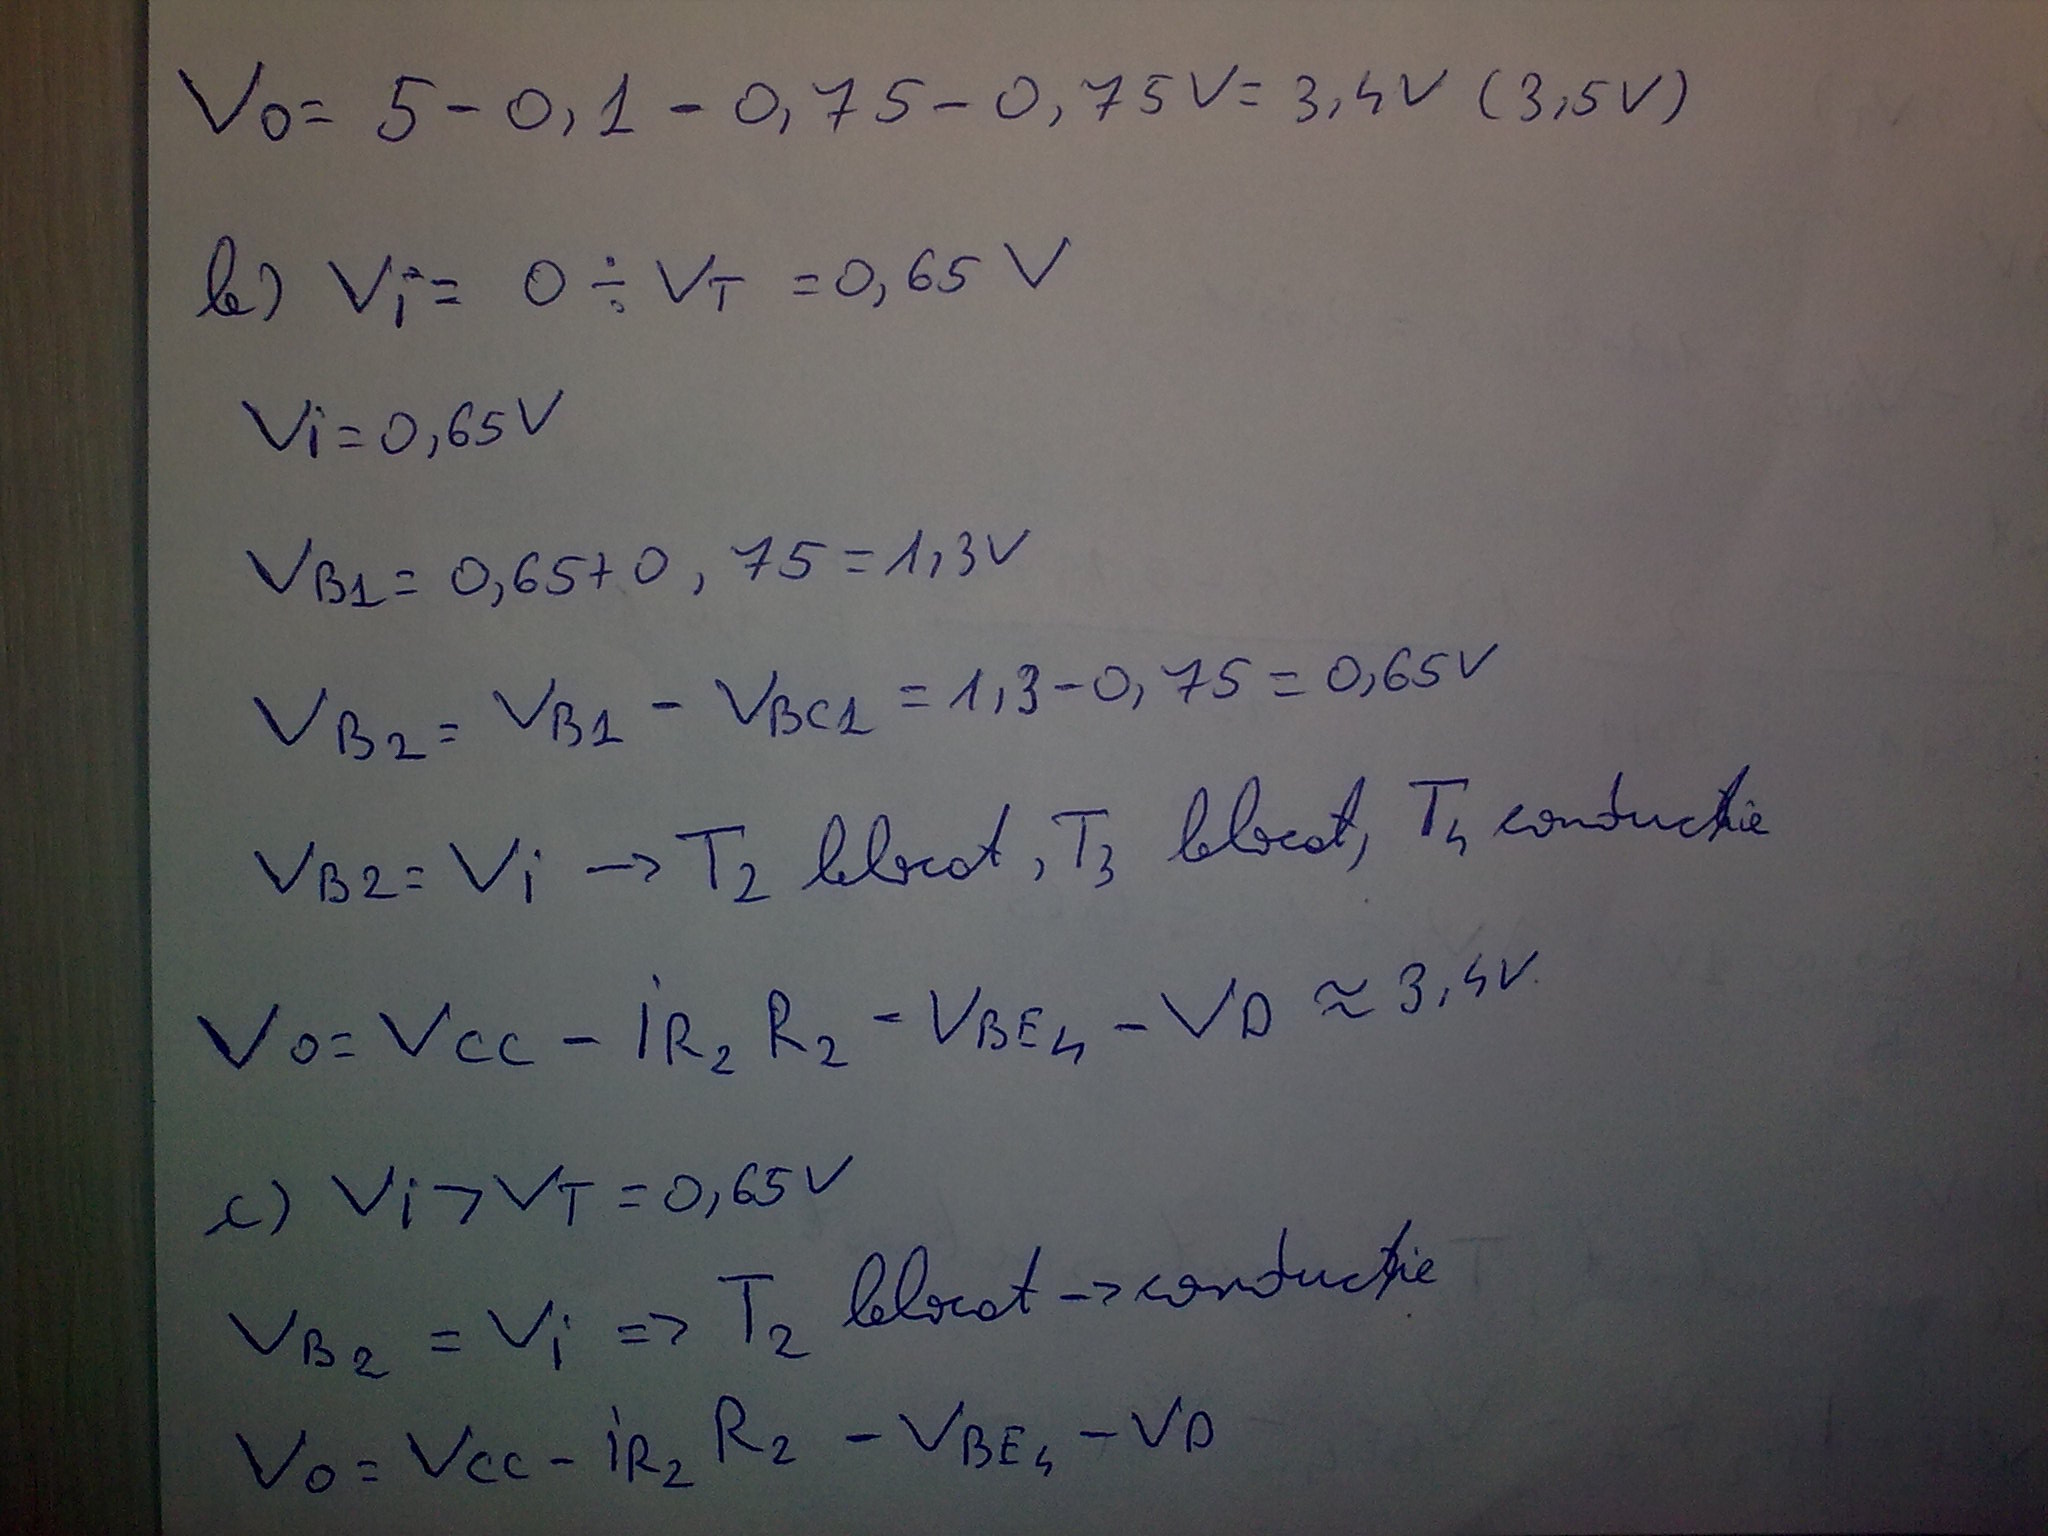 Vo = 5 - 0,1 - 0,75 - 0,75V = 3,4V (3,5V)
b) Vi = 0 ÷ VT = 0,65 V
Vi = 0,65V
VB1 = 0,65 + 0,75 = 1,3V
VB2 = VB1 - VBC1 = 1,3 - 0,75 = 0,65V
VB2 = Vi -> T2 blocat, T3 blocat, T4 conductie
Vo = VCC - iR2 R2 - VBE4 - VD ≈ 3,4V.
c) Vi > VT = 0,65V
VB2 = Vi => T2 blocat -> conductie
Vo = VCC - iR2 R2 - VBE4 - VD